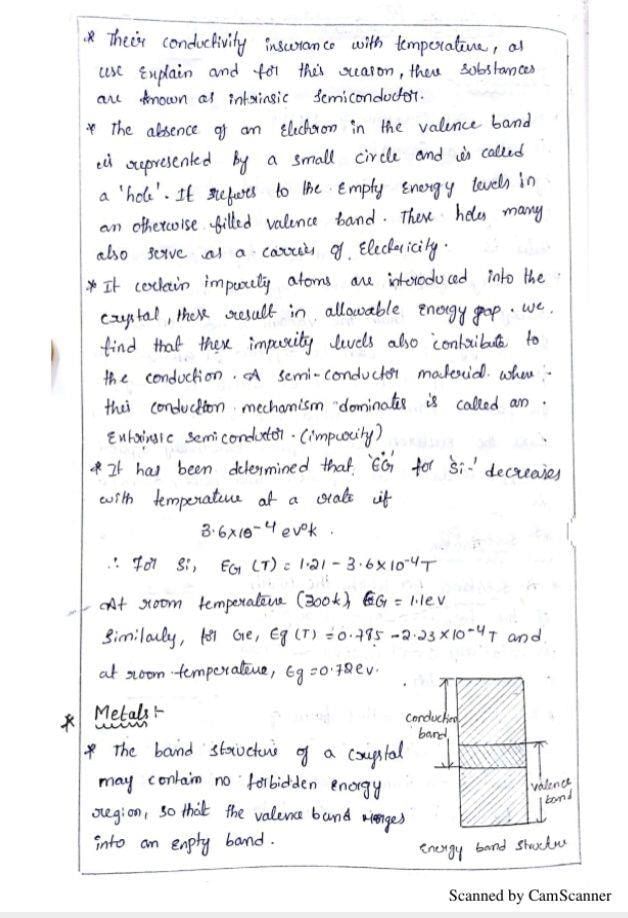 * Their conductivity insurance with temperature, as
use Explain and for this reason, these substances
are known as intrinsic semiconductor.
* The absence of an Electron in the valence band
is represented by a small circle and is called
a 'hole'. It referes to the Empty Energy levels in
an otherwise filled valence band. These holes many
also serve as a carries of Electricity.
* If certain impurity atoms are introduced into the
crystal, these result in allowable Energy gap. we
find that these impurity levels also contribute to
the conduction. A semi-conductor material when
this conduction mechanism dominates is called an
Extrinsic semiconductor. (impurity)
* It has been determined that 'EG' for 'Si' decreases
with temperature at a rate if
3.6x10-4 ev°k.
∴ For Si, EG (T) = 1.21 - 3.6x10-4T
At room temperature (300k), EG = 1.1ev
Similarly, for Ge, Eg (T) = 0.785 - 2.23x10-4T and
at room temperature, Eg = 0.72ev.
* Metals :-
* The band structure of a crystal
may contain no forbidden energy
region, so that the valence band merges
into an enpty band.
Conduction
band
valence
band
Energy band structure
Scanned by CamScanner